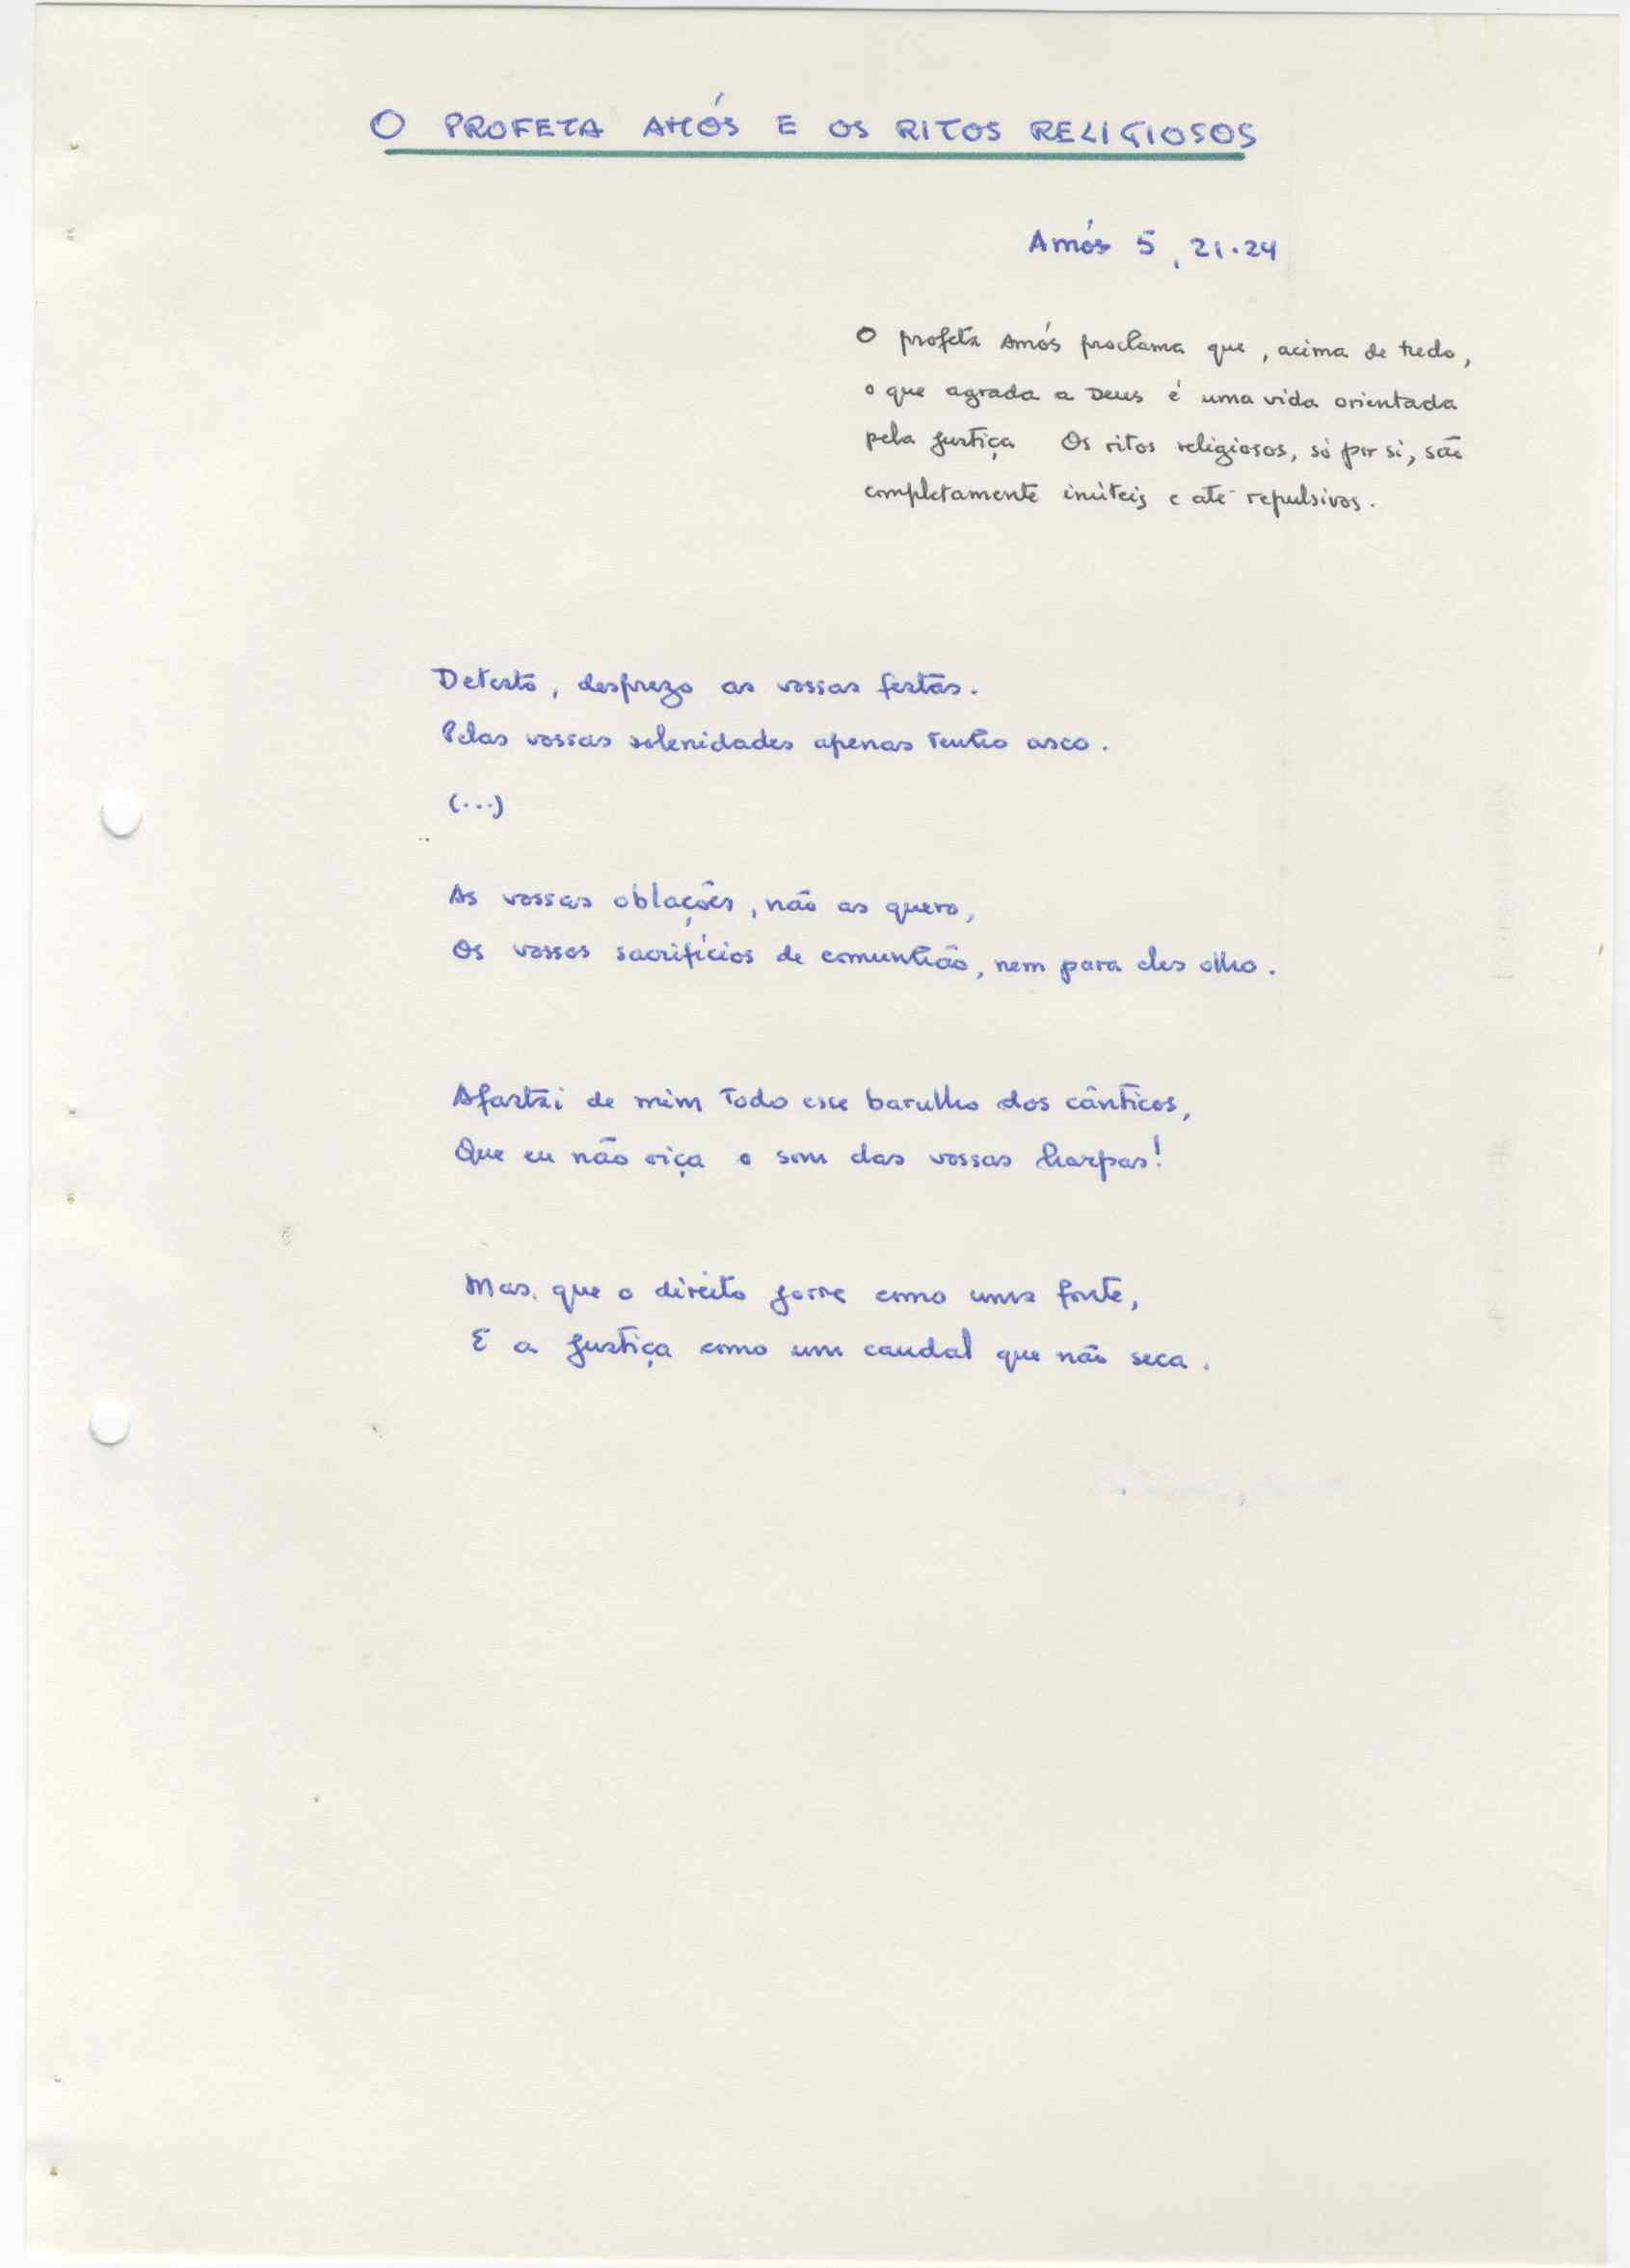 O PROFETA AMÓS E OS RITOS RELIGIOSOS
Amós 5, 21.24
O profeta Amós proclama que, acima de tudo,
o que agrada a Deus é uma vida orientada
pela justiça Os ritos religiosos, só por si, são
completamente inúteis e até repulsivos.
Detesto, desprezo as vossas festas.
Pelas vossas solenidades apenas tenho asco.
(...)
As vossas oblações, não as quero,
Os vossos sacrifícios de comunhão, nem para eles olho.
Afastai de mim todo esse barulho dos cânticos,
Que eu não oiça o som das vossas harpas!
Mas que o direito jorre como uma fonte,
E a justiça como um caudal que não seca.